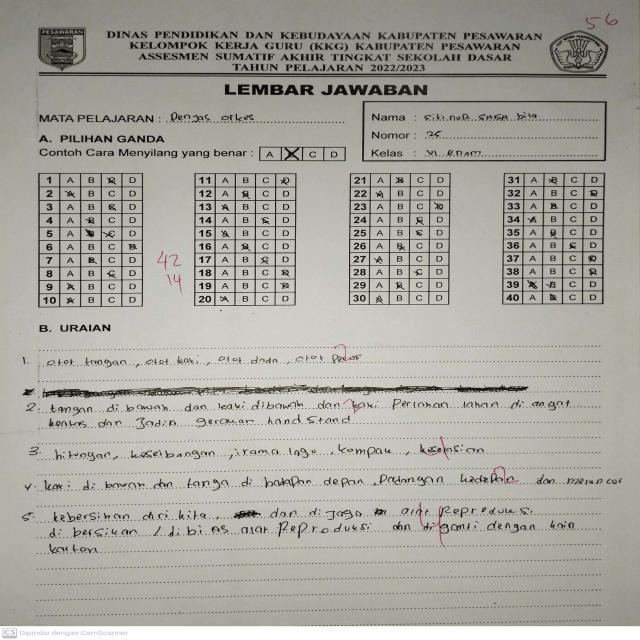 56
PESAWARAN
DINAS PENDIDIKAN DAN KEBUDAYAAN KABUPATEN PESAWARAN
KELOMPOK KERJA GURU (KKG) KABUPATEN PESAWARAN
ASSESMEN SUMATIF AKHIR TINGKAT SEKOLAH DASAR
TAHUN PELAJARAN 2022/2023
LEMBAR JAWABAN
MATA PELAJARAN : Penjas orkes
Nama : Siti nur
Nomor : 25
Kelas : VI. enam
A. PILIHAN GANDA
Contoh Cara Menyilang yang benar : A B C D
1 A B C D
2 A B C D
3 A B C D
4 A B C D
5 A B C D
6 A B C D
7 A B C D
8 A B C D
9 A B C D
10 A B C D
11 A B C D
12 A B C D
13 A B C D
14 A B C D
15 A B C D
16 A B C D
17 A B C D
18 A B C D
19 A B C D
20 A B C D
21 A B C D
22 A B C D
23 A B C D
24 A B C D
25 A B C D
26 A B C D
27 A B C D
28 A B C D
29 A B C D
30 A B C D
31 A B C D
32 A B C D
33 A B C D
34 A B C D
35 A B C D
36 A B C D
37 A B C D
38 A B C D
39 A B C D
40 A B C D
42
14
B. URAIAN
1. otot tangan, otot kaki, otot dada, otot
2. tangan di bawah dan kaki dibawah dan kaki Perlahan lahan di angat
keatas dan Jadin gerakan hand stand
3. hitungan, keseibangan, irama lagu, kompak,
4. kaki di bawah dan tanga di hadapan depan, Padangan kedepan dan meluncur
5. kebersihan diri kita, dan di Jaga alat Reproduksi
di bersikan / dibi as alat Reproduksi dan diganti dengan kain
CS Dipindai dengan CamScanner